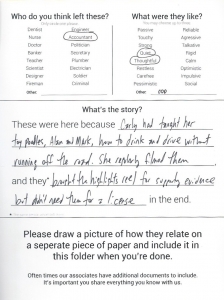 Who do you think left these?
What were they like?
Dentist Engineer
Nurse Accountant
Doctor Politician
Banker Secretary
Teacher Plumber
Scientist Electrician
Designer Soldier
Fireman Criminal
Other:
Passive Reliable
Touchy Aggressive
Sloppy Talkative
Quiet Rigid
Thoughtful Calm
Restless Optimistic
Carefree Impulsive
Pessimistic Social
Other: pop
What's the story?
These were here because Carly had taught her
toy poodles, Alan and Mark, how to drink and drive without
running off the road. She regularly filmed them
and they brought the highlights reel for supporting evidence
but didn't need them for a license in the end.
Please draw a picture of how they relate on
a seperate piece of paper and include it in
this folder when you're done.
Often times our associates have additional documents to include.
It's important you share everything you know with us.